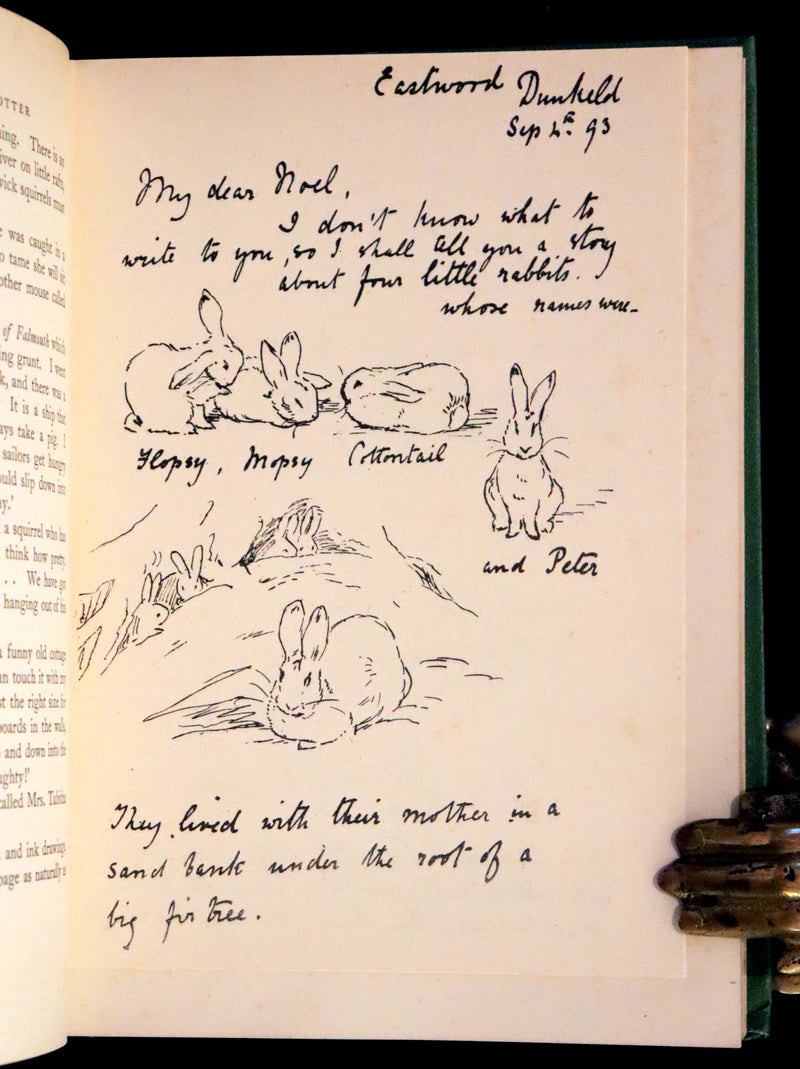 OTTER
ning. There is an
iver on little rafts,
wick squirrels must
e was caught in a
o tame she will sit
other mouse called
of Falmouth which
ing grunt. I went
k, and there was a
It is a ship that
ays take a pig. I
sailors get hungry
ould slip down into
ay.'
a squirrel who has
think how pretty
. . We have got
hanging out of his
a funny old cottage
an touch it with my
st the right size for
boards in the walls,
and down into the
ughty!'
called Mrs. Tabitha
and ink drawings
page as naturally as
Eastwood Dunkeld
Sep 4th 93
My dear Noel,
I don't know what to
write to you, so I shall tell you a story
about four little rabbits.
whose names were–
Flopsy, Mopsy Cottontail
and Peter
They lived with their mother in a
sand bank under the root of a
big fir tree.